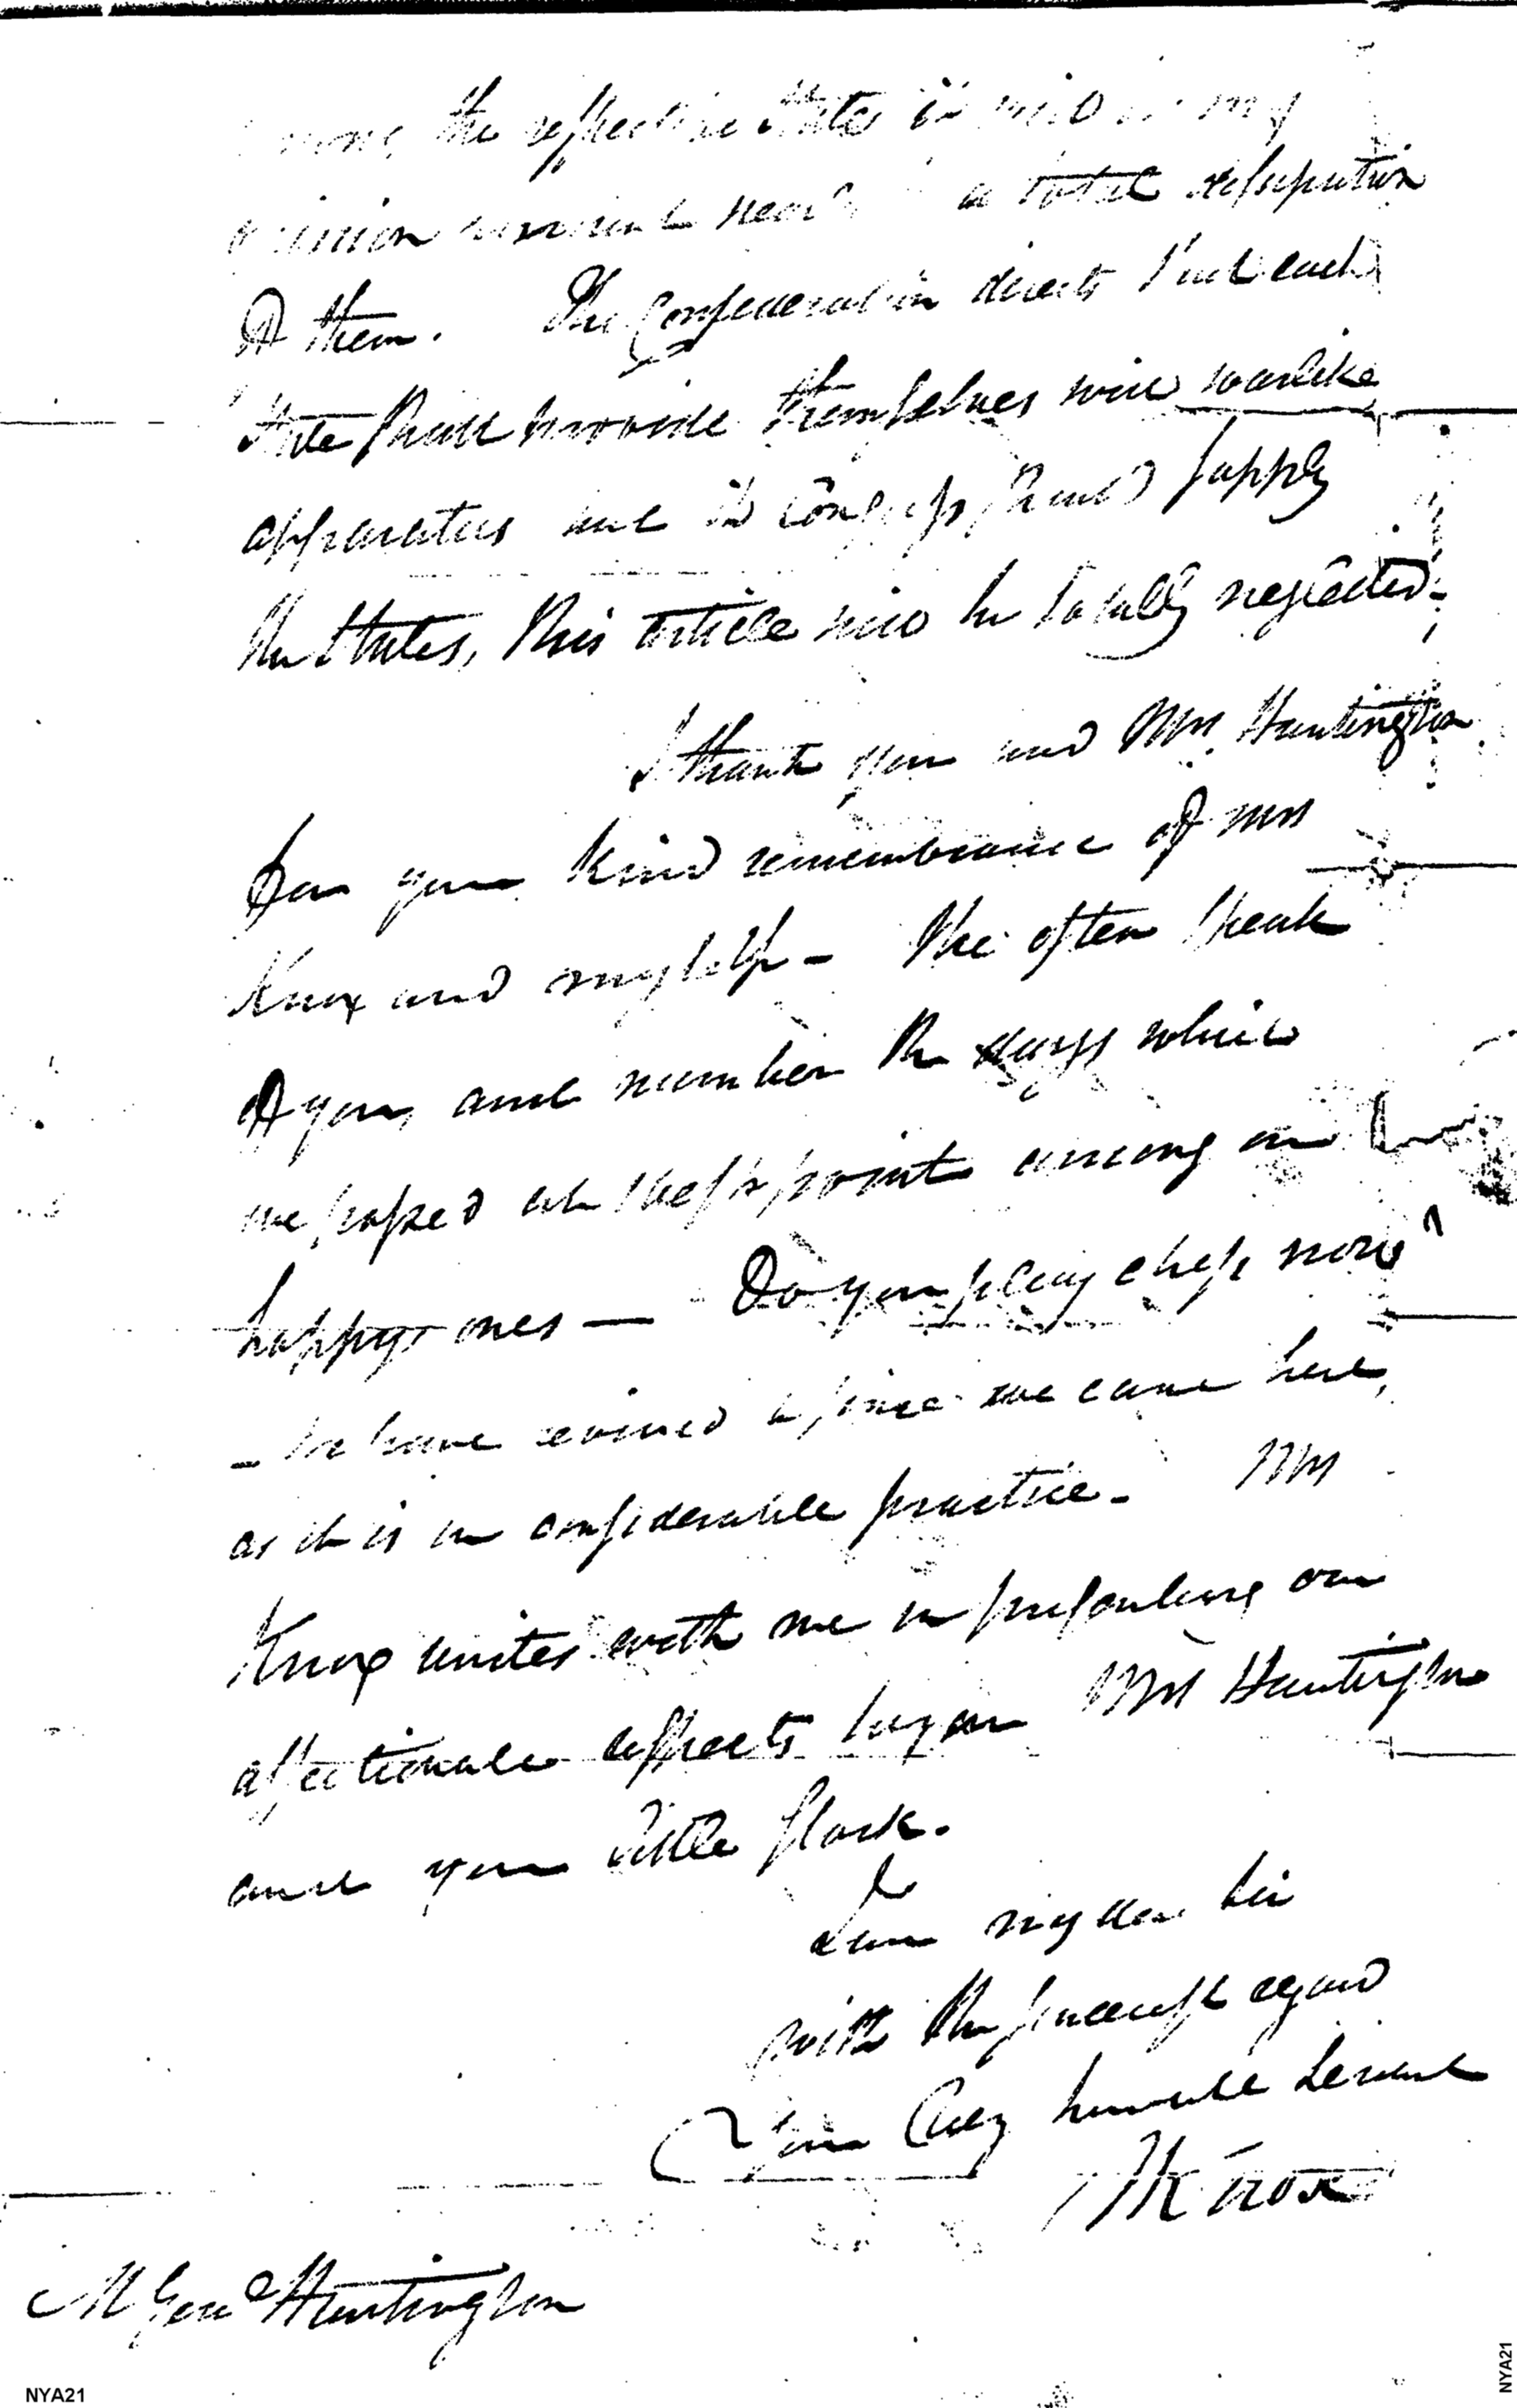 the respective States it would in my
opinion amount nearly a total dissipution
of them. The Confederation directs that each
State shall provide themselves with warlike
apparatus and if Congress should supply
the States, this article will be totally neglected.
I thank you and Mrs. Huntington
for your kind remembrance of Mrs
Knox and myself - We often speak
of you, and number the days which
we passed at West point among our
happy ones — Do you play chess now?
- We have revived it since we came here,
as it is in considerable practice - Mrs
Knox unites with me in presenting our
affectionate respects to you Mrs Huntington
and your little flock.
I am my dear Sir
with the sincerest regard
Your Obey humble Servant
HKnox
M Genl Huntington
NYA21
NYA21